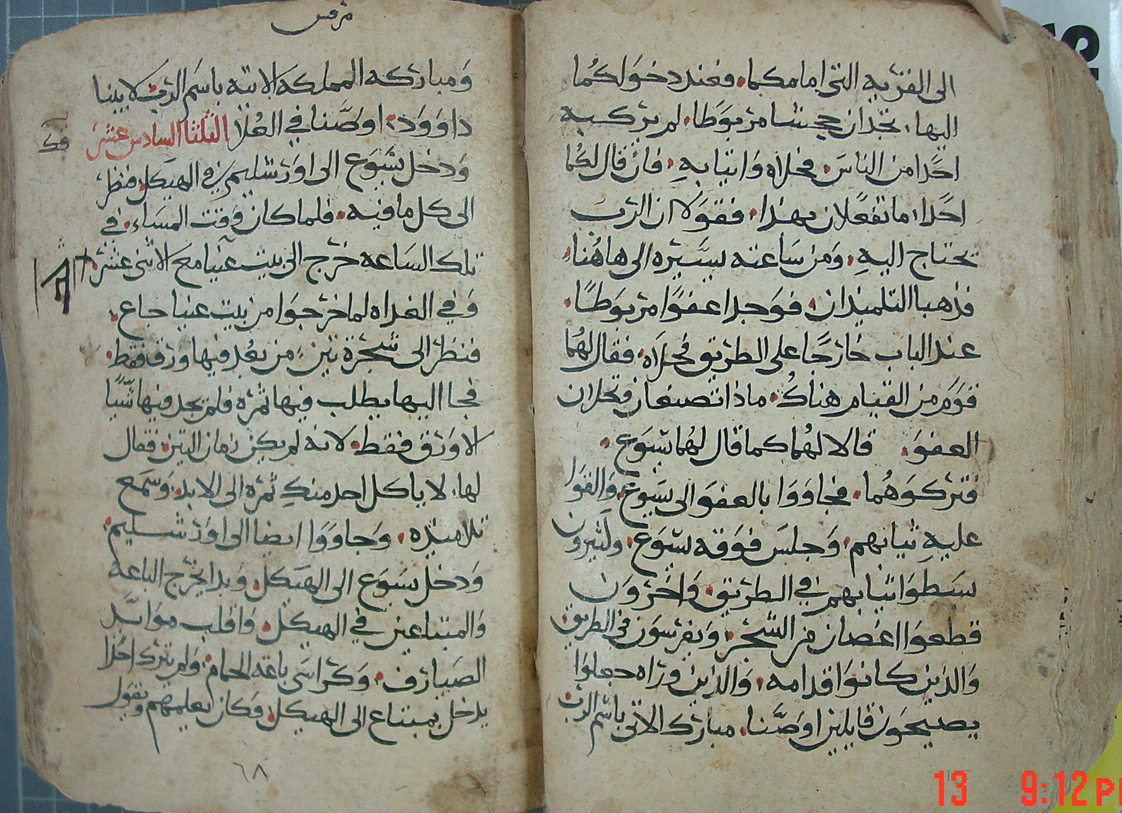 الى القريه التى امامكما. فعند دخولكما
اليها. تجدان جحشا مربوطا. لم يركبه
احدا من الناس. فحلاه واتيا به. فان قال لكما
احدا. ما تفعلان بهدا. فقولا ان الرب
يحتاج اليه. ومن ساعته يسيره الى هاهنا.
فدهبا التلميدان. فوجدا عفوا مربوطا.
عند الباب خارجا على الطريق فحلاه. فقال لهما
قوم من القيام هناك. مادا تصنعان وتحلان
العفو. قالا لهما كما قال لهما يسوع.
فتركوهما. فجاووا بالعفو الى يسوع. والقوا
عليه ثيابهم. وجلس فوقه يسوع. ولثيرون
بسطوا ثيابهم في الطريق. واخرون
قطعوا اغصان من الشجر. ويفرشون في الطريق
والدين كانوا قدامه. والدين وراه جعلوا
يصيحون قايلين اوصنا. مبارك الاتى باسم الرب
مرقس
ومباركه المملكه الاتيه باسم الرب لابينا
داوود. اوصنا في العلا الثلثا السادس عشر
ودخل يسوع الى اورشليم. في الهيكل فنظر
الى كل ما فيه. فلما كان وقت المساء. في
تلك الساعه خرج الى بيت عنيا مع الاثنى عشر
وفي الغداه لما خرجوا من بيت عنيا جاع.
فنظر الى شجرة تين. من بعد فيها ورق فقط.
فجا اليها يطلب فيها ثمره فلم يجد فيها شيا
الا ورق فقط. لانه لم يكن زمان التين. فقال
لها. لا ياكل احد منك ثمره الى الابد. وسمع
تلاميده. وجاووا ايضا الى اورشليم.
ودخل يسوع الى الهيكل. وبدا يخرج الباعه
والمبتاعين في الهيكل. واقلب موايد
الصيارف. وكراسى باعه الحمام. ولم يترك احدا
يدخل بمتاع الى الهيكل. فكان يعلمهم ويقول
٦٨
13 9:12